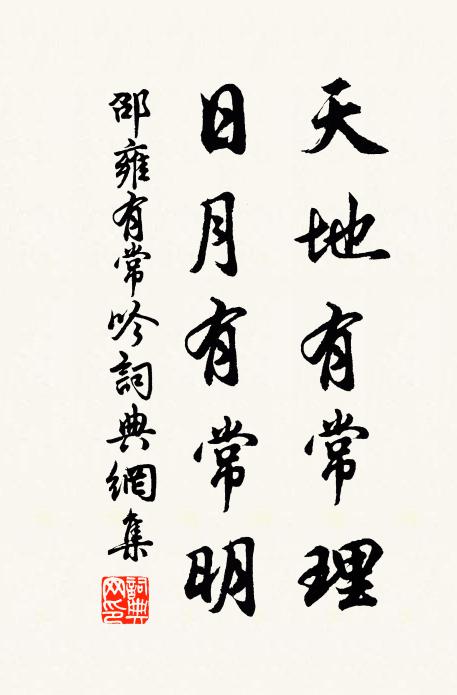 天地有常理
日月有常明
邵雍有常吟詞典網集
詞典網印